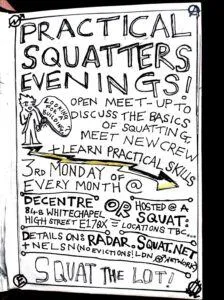 PRACTICAL
SQUATTERS
EVENINGS!
LOOKING FOR A BUILDING?
OPEN MEET-UP TO
DISCUSS THE BASICS
OF SQUATTING,
MEET NEW CREW
+ LEARN PRACTICAL SKILLS
3RD MONDAY OF
EVERY MONTH @
DECENTRE
84-B WHITECHAPEL
HIGH STREET E1 7QX
OR
HOSTED @ A
SQUAT:
LOCATIONS TBC...
DETAILS ON: RADAR.SQUAT.NET
+ NELSN (NO EVICTIONS! LDN @ NETWORK)
SQUAT THE LOT!